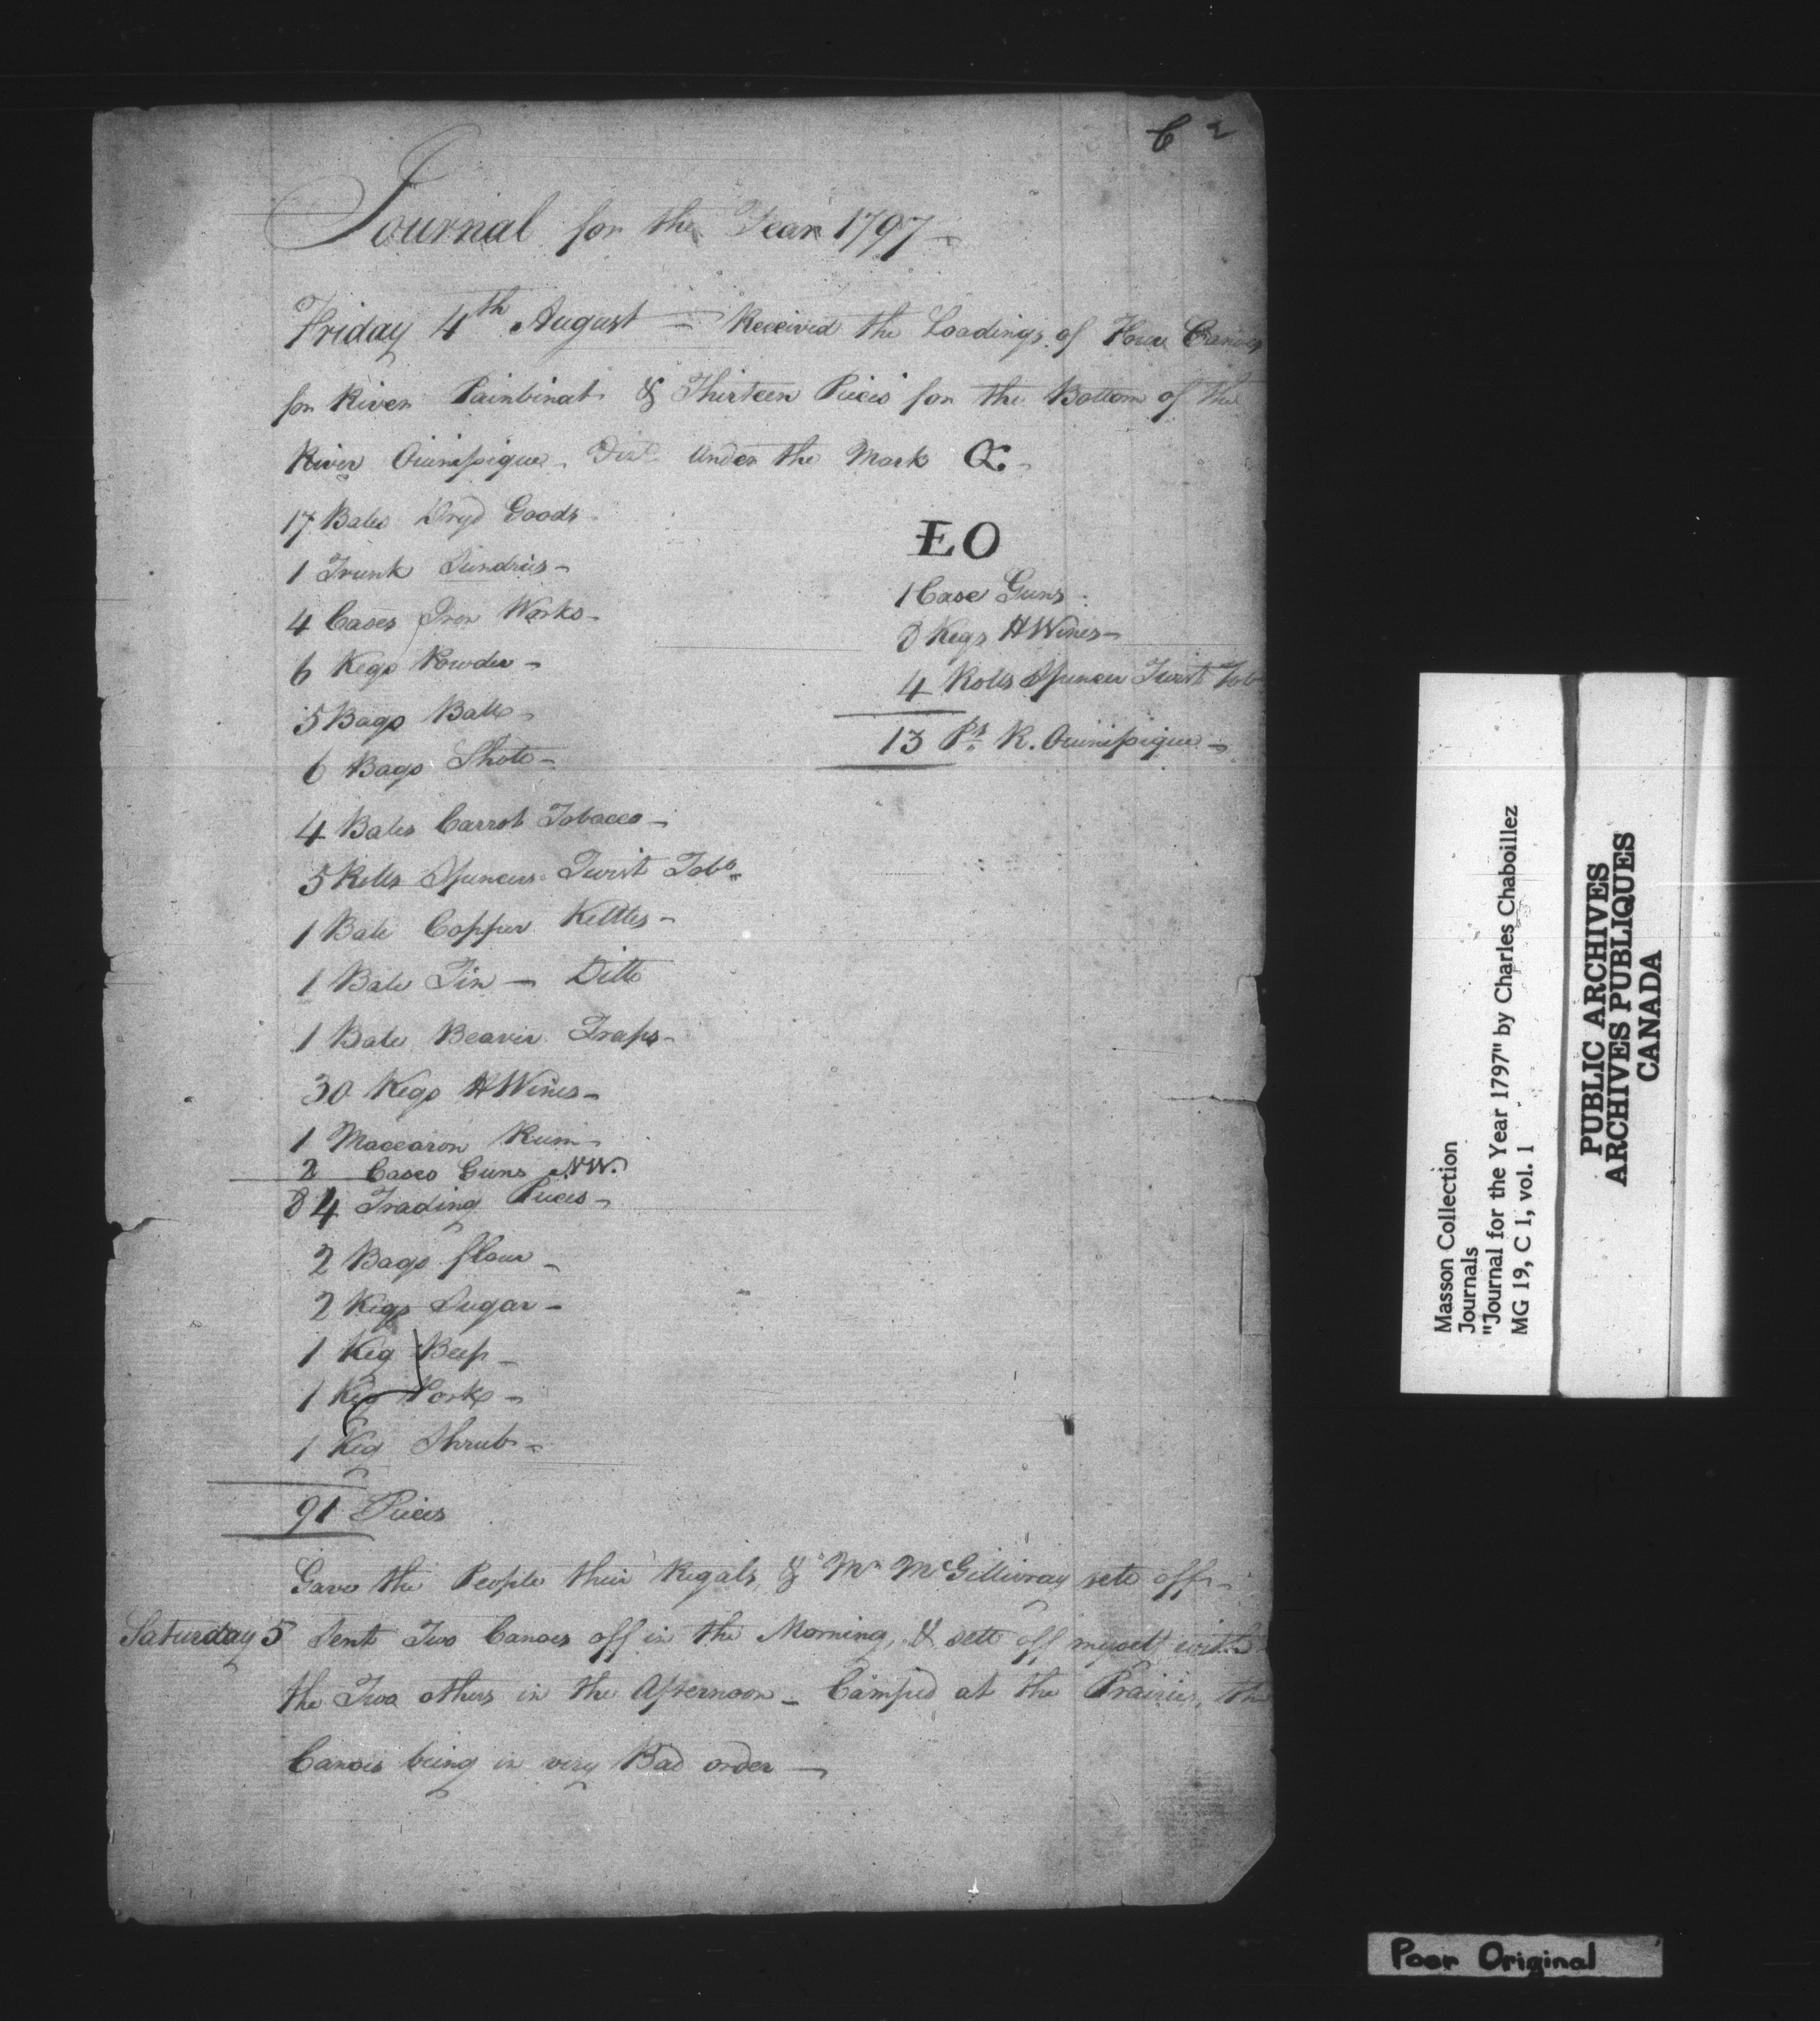 C 2
Journal for the Year 1797 —
Friday 4th August — Received the Loadings of Four Canoes
for River Painbinat & Thirteen Pieces for the Bottom of the
River Ouinipique Under the Mark
17 Bales Dryd Goods
1 Trunk Sundries —
4 Cases Iron Works —
6 Kegs Powder —
5 Bags Balls —
6 Bags Shott —
4 Bales Carrot Tobacco —
5 Rolls Spencers Twist Tobo.
1 Bale Copper Kettles —
1 Bale Tin — Ditto
1 Bale Beaver Traps —
30 Kegs HWines —
1 Maccaron Rum —
2 Cases Guns NW.
84 Trading Pieces —
2 Bags flour —
2 Kegs Sugar —
1 Keg Beef —
1 Keg Pork —
1 Keg Shrub —
91 Pieces
EO
1 Case Guns
8 Kegs HWines —
4 Rolls Spencer Twist Tob
13 Ps. R. Ouinipique —
Gave the People their Regals, & Mr McGillivray sett off —
Saturday 5 Sent Two Canoes off in the Morning, & sett off myself with
the Two others in the Afternoon — Camped at the Prairies, the
Canoes being in very Bad order —
Masson Collection
Journals
"Journal for the Year 1797" by Charles Chaboillez
MG 19, C 1, vol. 1
PUBLIC ARCHIVES
ARCHIVES PUBLIQUES
CANADA
Poor Original